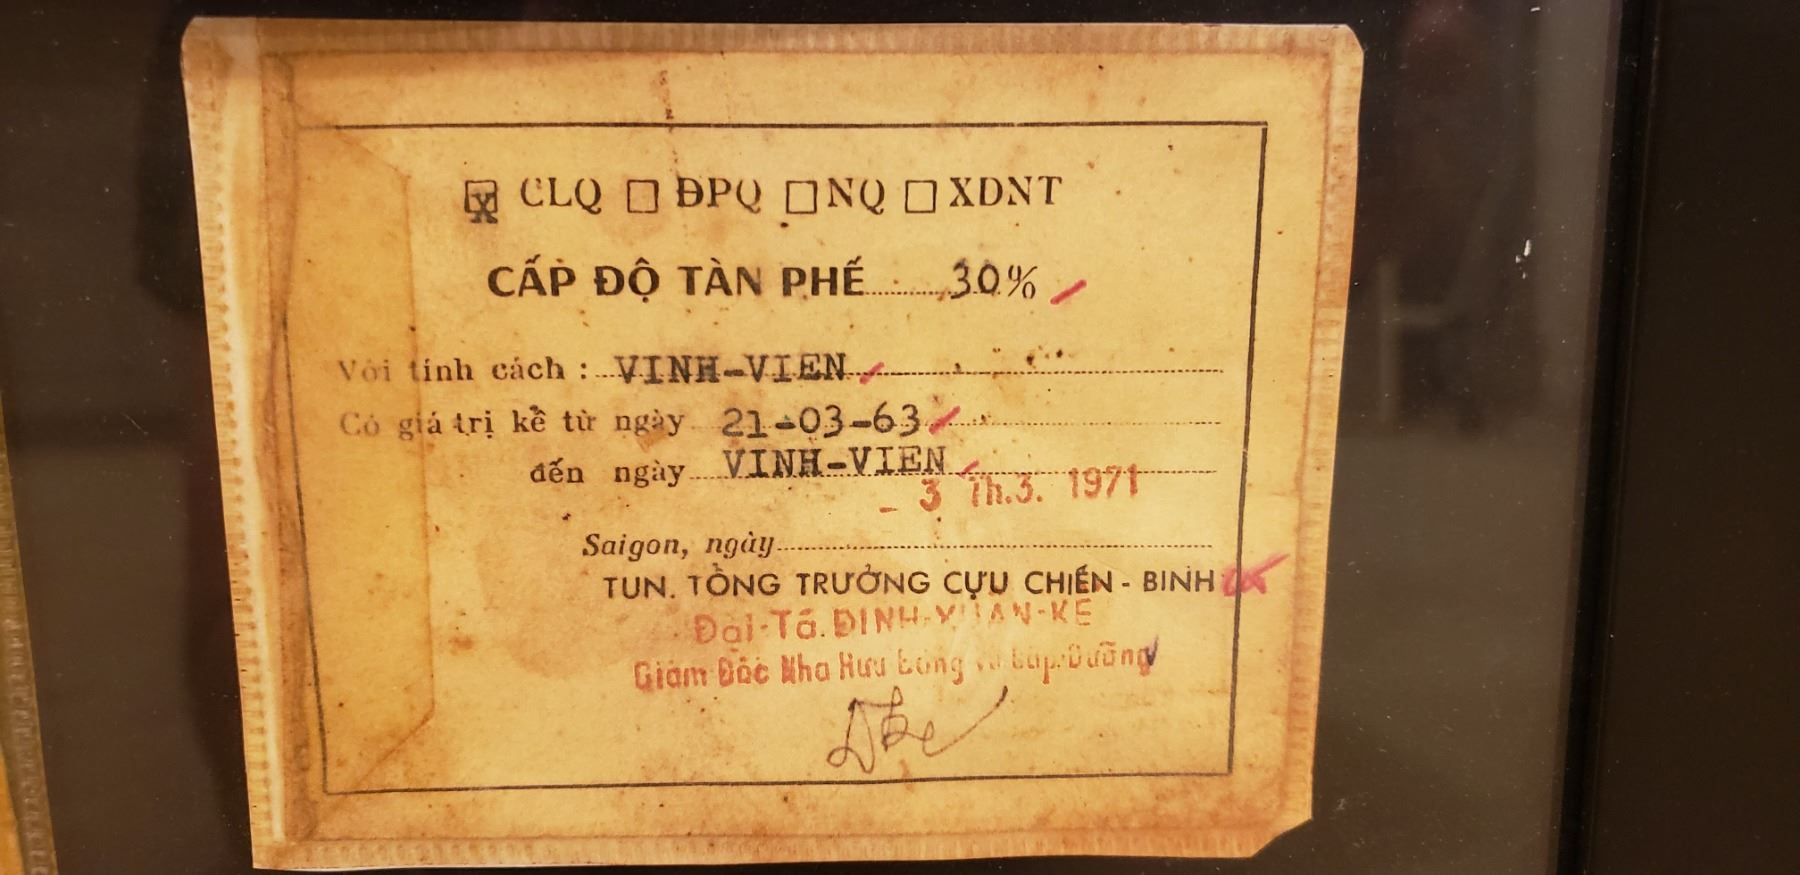 ☒ CLQ ☐ ĐPQ ☐ NQ ☐ XDNT
CẤP ĐỘ TÀN PHẾ 30%
Với tính cách : VINH-VIEN
Có giá trị kể từ ngày 21-03-63
đến ngày VINH-VIEN
- 3 Th.3. 1971
Saigon, ngày
TUN. TỔNG TRƯỞNG CỰU CHIẾN - BINH
Đại-Tá. ĐINH-XUAN-KE
Giám Đốc Nha Hưu Bổng và Cấp-Dưỡng